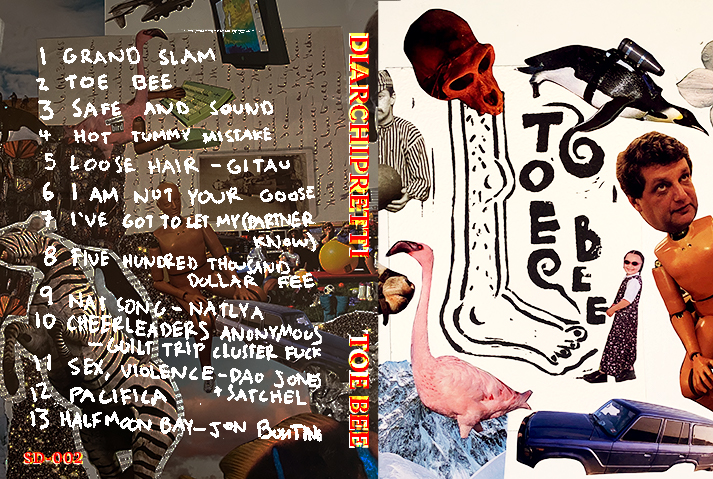 1 GRAND SLAM
2 TOE BEE
3 SAFE AND SOUND
4 HOT TUMMY MISTAKE
5 LOOSE HAIR - GITAU
6 I AM NOT YOUR GOOSE
7 I'VE GOT TO LET MY (PARTNER
KNOW)
8 FIVE HUNDRED THOUSAND
DOLLAR FEE
9 NAT SONG - NATLYA
10 CHEERLEADERS ANONYMOUS
- GUILT TRIP CLUSTER FUCK
11 SEX, VIOLENCE - DAO JONES
+ SATCHEL
12 PACIFICA
13 HALFMOON BAY - JON BUNTING
SD-002
DIARCHIPRETTI TOE BEE
TOE
BEE